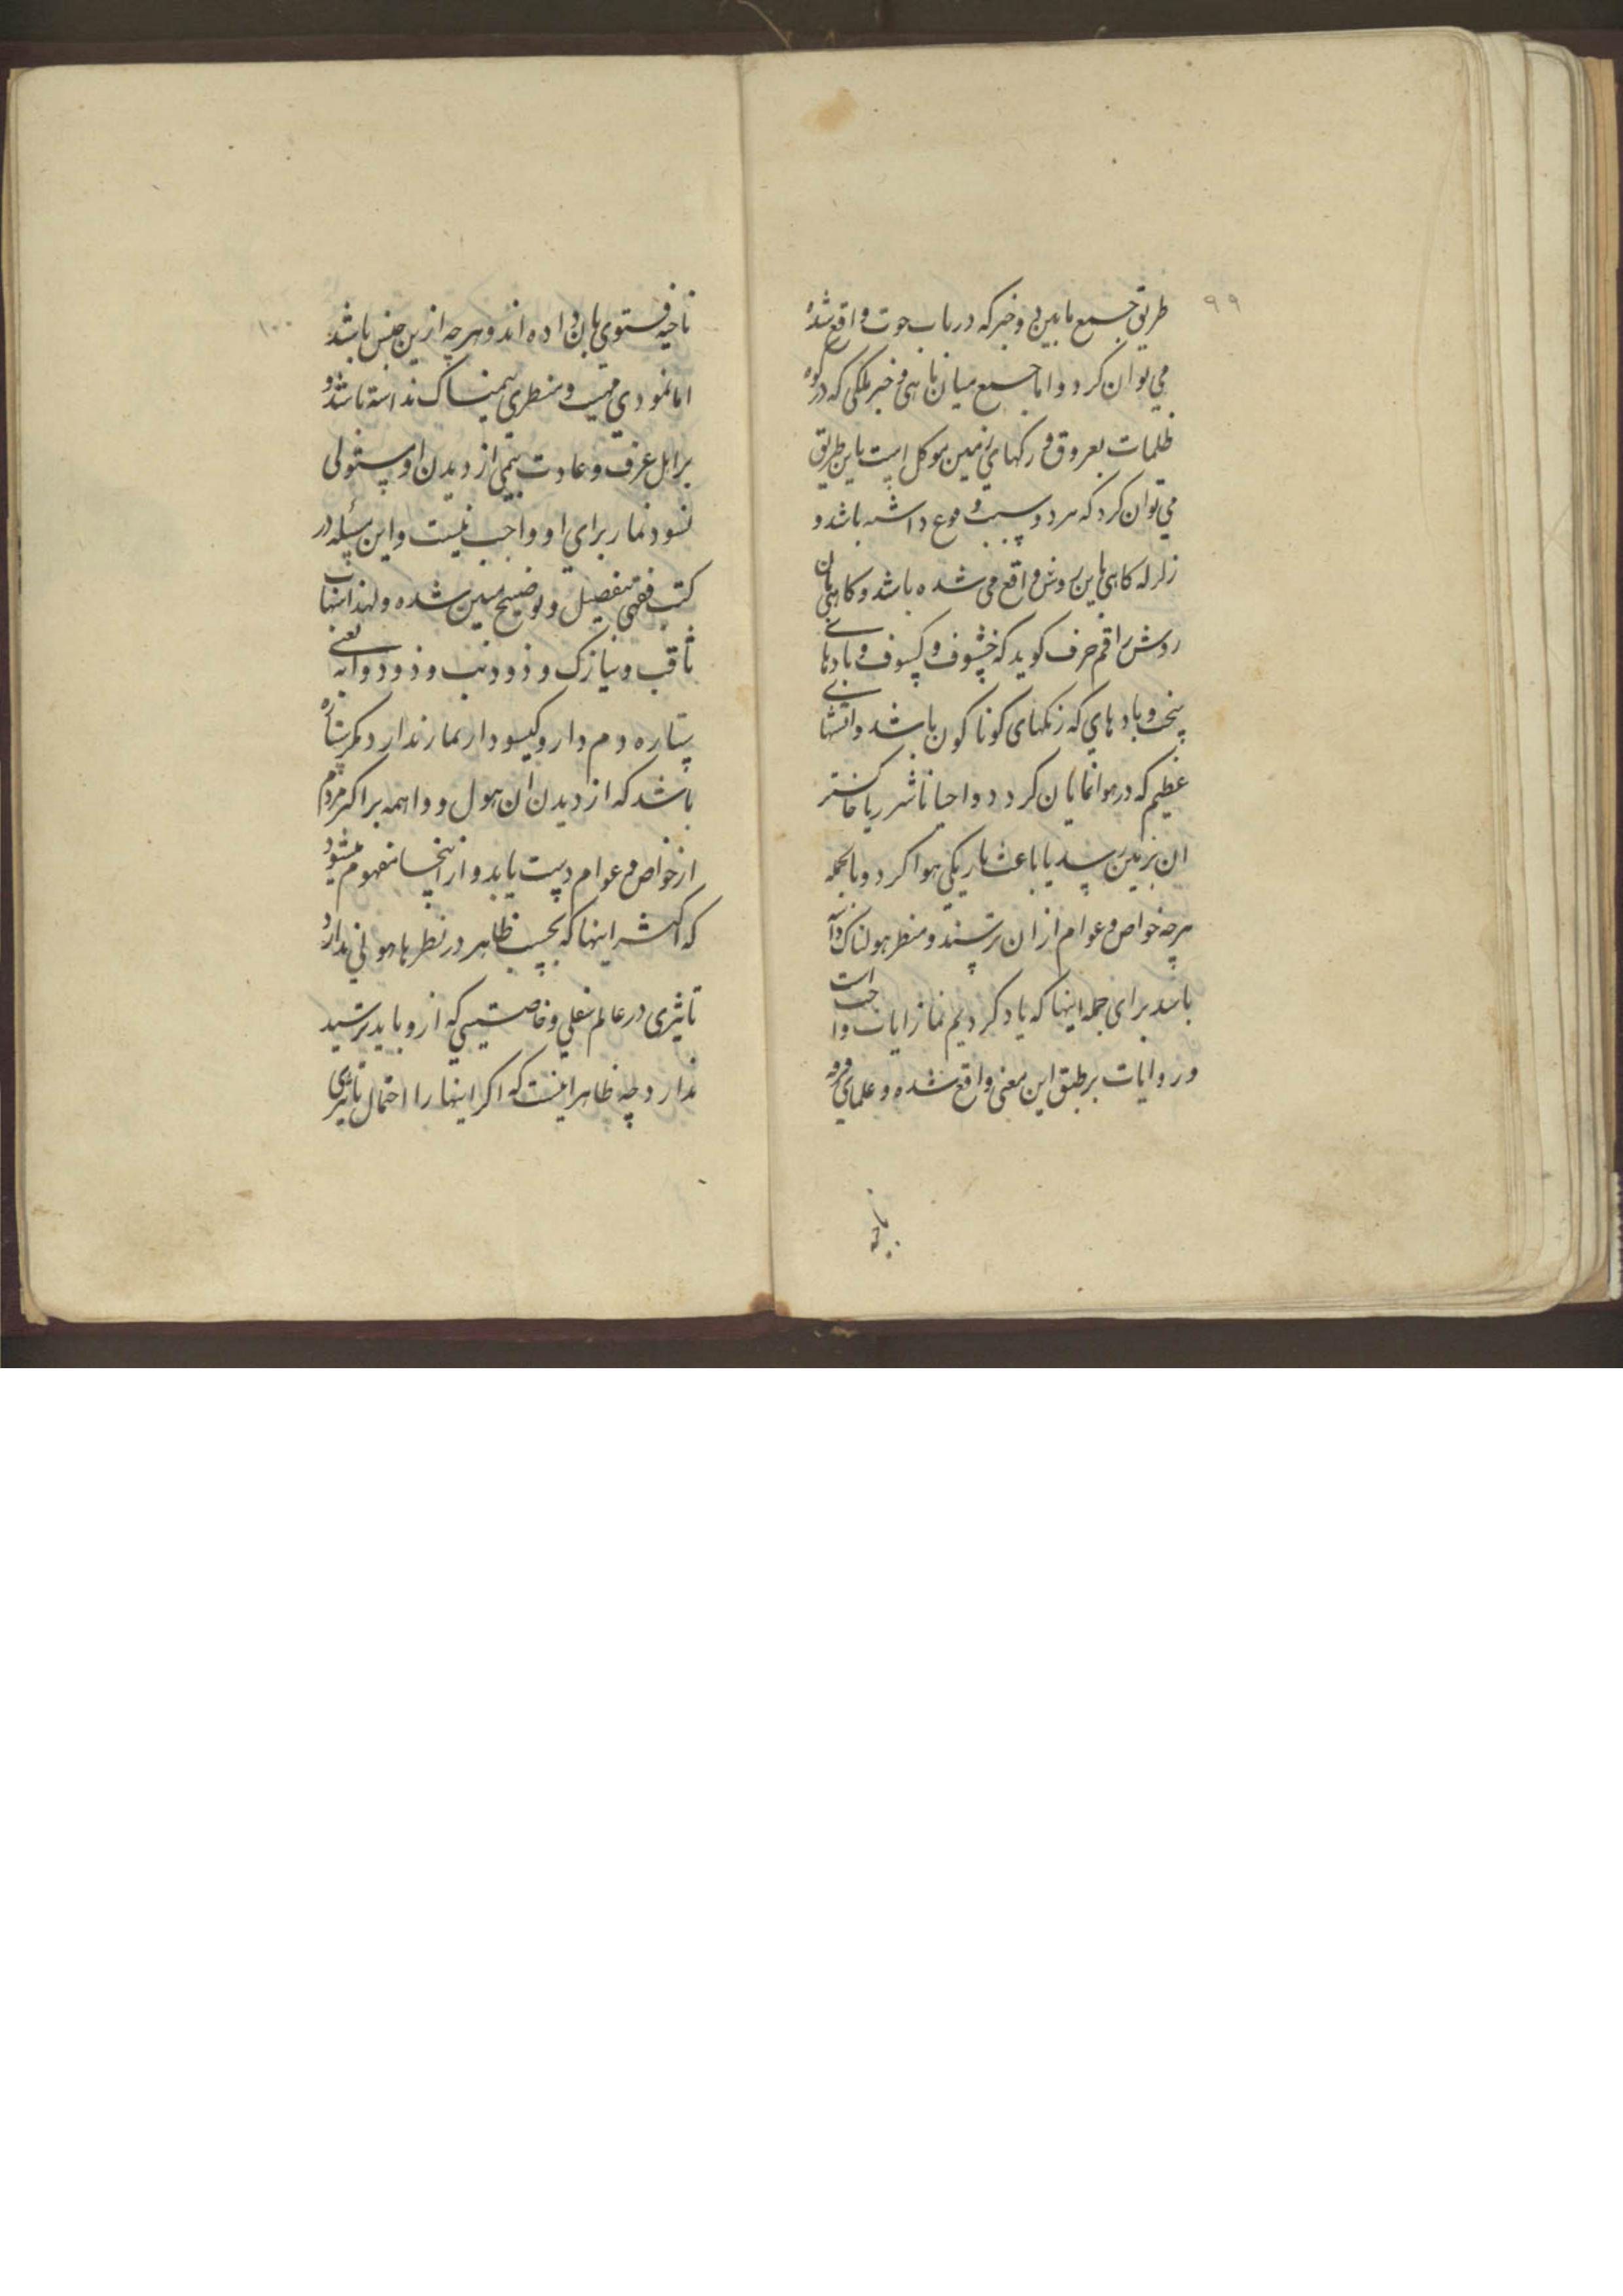 ۹۹
طریق جمع مابین دو خبر که در باب حوت واقع شده
می توان کرد و اما جمع میان ماهی و خبر ملکی که در کوه
ظلمات بعروق و رکهای زمین موکل است باین طریق
می توان کرد که هر دو سبب وقوع داشته باشد و
زلزله کاهی باین روش واقع می شده باشد و کاهی بان
روش راقم حرف کوید که خسوف و کسوف و بادهای
سخت و بادهای که رنکهای کوناکون باشد و اتشهای
عظیم که در هوا نمایان کردد و احیانا شرر یا خاکستر
ان بزمین رسد یا باعث تاریکی هوا کردد و بالجمله
هرچه خواص و عوام از ان ترسند و منظر هولناک داشته
باشد برای جمله اینها که یاد کردیم نماز ایات واجب است
و روایات برطبق این معنی واقع شده و علمای فرقه
ناجیه
۱۰۰
ناجیه فتوی بان داده اند و هرچه ازین جنس باشد
اما نمودی مهیب و منظری سهمناک نداشته باشد و
بر اهل عرف و عادت بیمی از دیدن او مستولی
نسود نماز برای او واجب نیست و این مسئله در
کتب فقهی بتفصیل و توضیح مبین شده و لهذا شهاب
ثاقب و نیازک و ذو ذنب و ذو ذوابه یعنی
ستاره دم دار و کیسو دار نماز ندارد مکر ستاره
باشد که از دیدن ان هول و واهمه بر اکثر مردم
از خواص و عوام دست یابد و از اینجا مفهوم میشود
که اکثر اینها که بحسب ظاهر در نظرها هولی ندارد
تاثیری در عالم سفلی و خاصیتی که ازو باید ترسید
ندارد و چه ظاهر اینست که اکر اینها را احتمال تاثیری